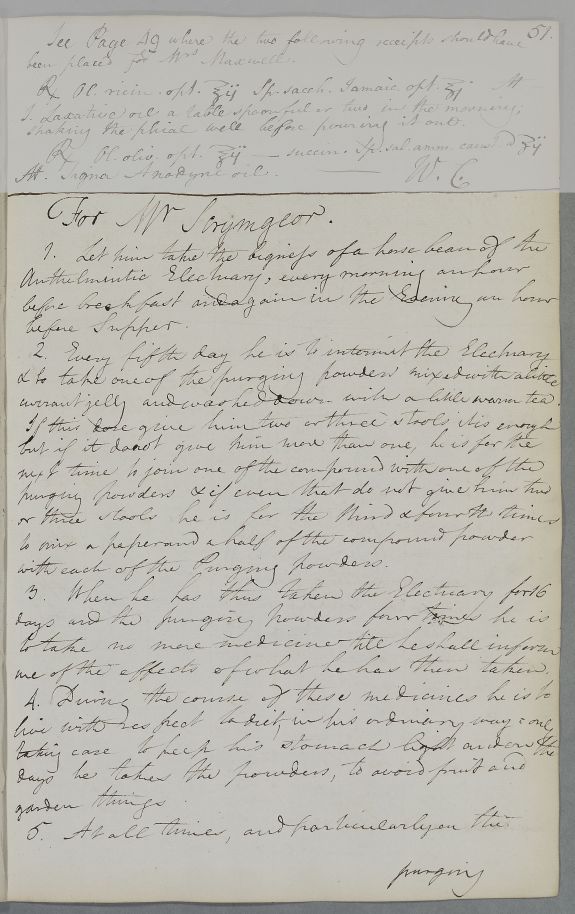 51.
See Page 49 where the two following receipts should have
been placed for Mrs Maxwell.
℞ Ol. ricin. opt. ℥ij Sp. sacch. Jamaic. opt. ℥j M
S. Laxative oil a table spoonful or two in the morning;
shaking the phial well before pouring it out.
℞ Ol. oliv. opt. ℥ij — succin. Sp. sal. amm. caust. ʒij
M. Signa Anodyne oil. — W. C.
For Mr Scrymgeor.
1. Let him take the bigness of a horse bean of the
Anthelmintic Electuary, every morning an hour
before breakfast and again in the Evening an hour
before Supper.
2. Every fifth day he is to intermit the Electuary
& to take one of the purging powders mixed with a little
currant jelly and washed down with a little warm tea.
If this dose give him two or three stools it is enough
but if it do not give him more than one, he is for the
next time to join one of the compound with one of the
purging powders & if even that do not give him two
or three stools he is for the third & fourth times
to mix a paper and a half of the compound powder
with each of the Purging powders.
3. When he has thus taken the Electuary for 16
days and the purging powders four times he is
to take no more medicine till he shall inform
me of the effects of what he has then taken.
4. During the course of these medicines he is to
live with respect to diet, in his ordinary way only
taking care to keep his stomach light and on the
days he takes the powders, to avoid fruit and
garden things.
5. At all times, and particularly on the
purging